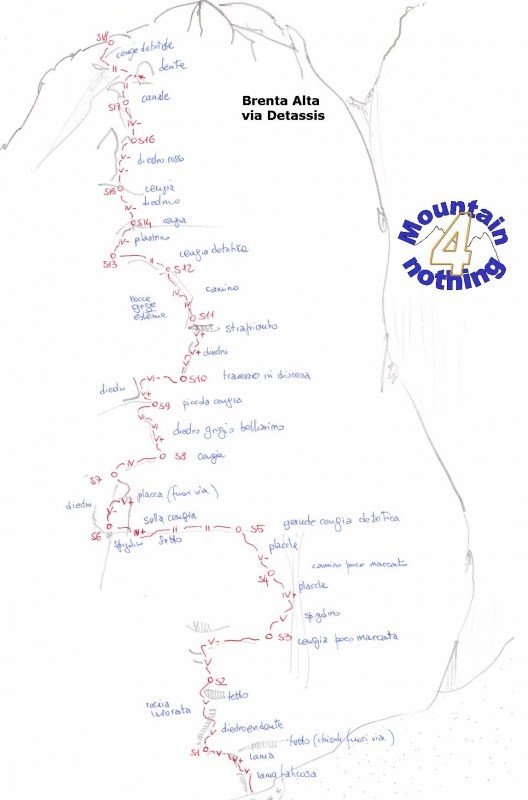 S18
cengia detritica
II
dente
S17
canale
IV-
S16
V-
diedro rosso
V-
S15
cengia
diedrino
IV-
S14
cengia
pilastrino
V-
S13
II
S12
cengia detritica
camino
IV
rocce
grigie
esterne
IV
S11
strapiombo
V+
diedro
V+
VI-
S10
traverso in discesa
diedro
V+
S9
piccola cengia
VI-
diedro grigio bellissimo
V+
S8
cengia
IV
S7
diedro
V+
placca (fuori via)
V-
sulla cengia
S6
IV+
II
II
S5
grande cengia detritica
spigolino
sotto
placche
V-
camino poco marcato
S4
IV+
placche
V
spigolino
S3
cengia poco marcata
V-
V
S2
tetto
roccia
lavorata
V
diedro
S1
tetto (chiodi fuori via)
V-
V+
lama
V
lama faticosa
Brenta Alta
via Detassis
Mountain
4
nothing